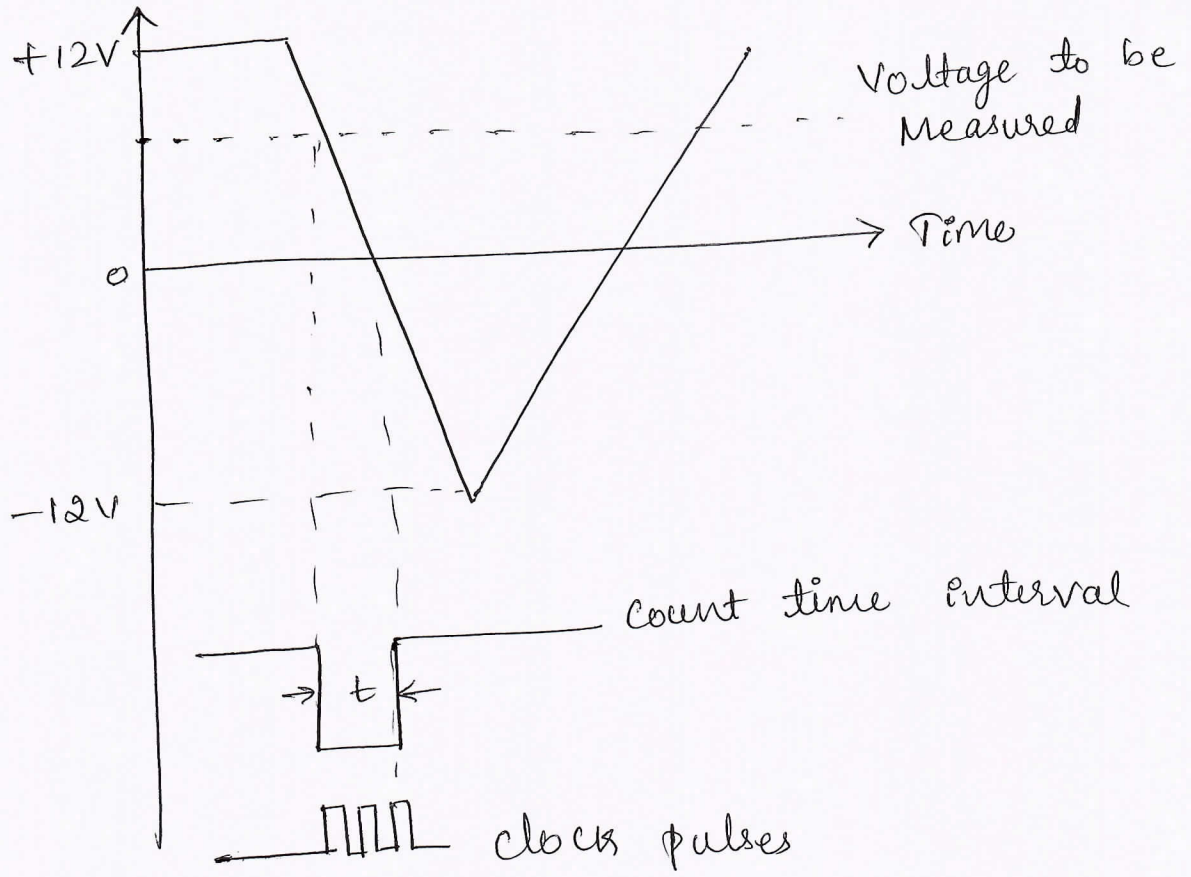 +12V
Voltage to be
Measured
Time
0
-12V
Count time interval
t
clock pulses